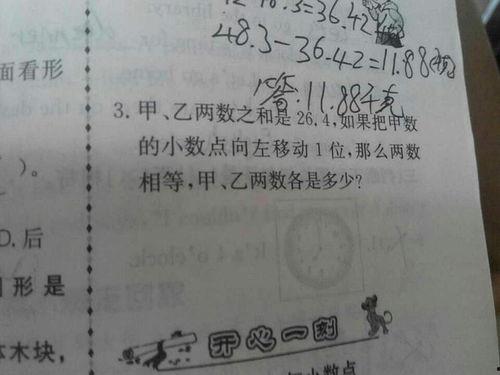 48.3-36.42=11.88
答:11.88千克
3. 甲、乙两数之和是26.4,如果把甲数
的小数点向左移动1位,那么两数
相等,甲、乙两数各是多少?
面看形
)。
D. 后
形是
木块,
开心一刻
小数点